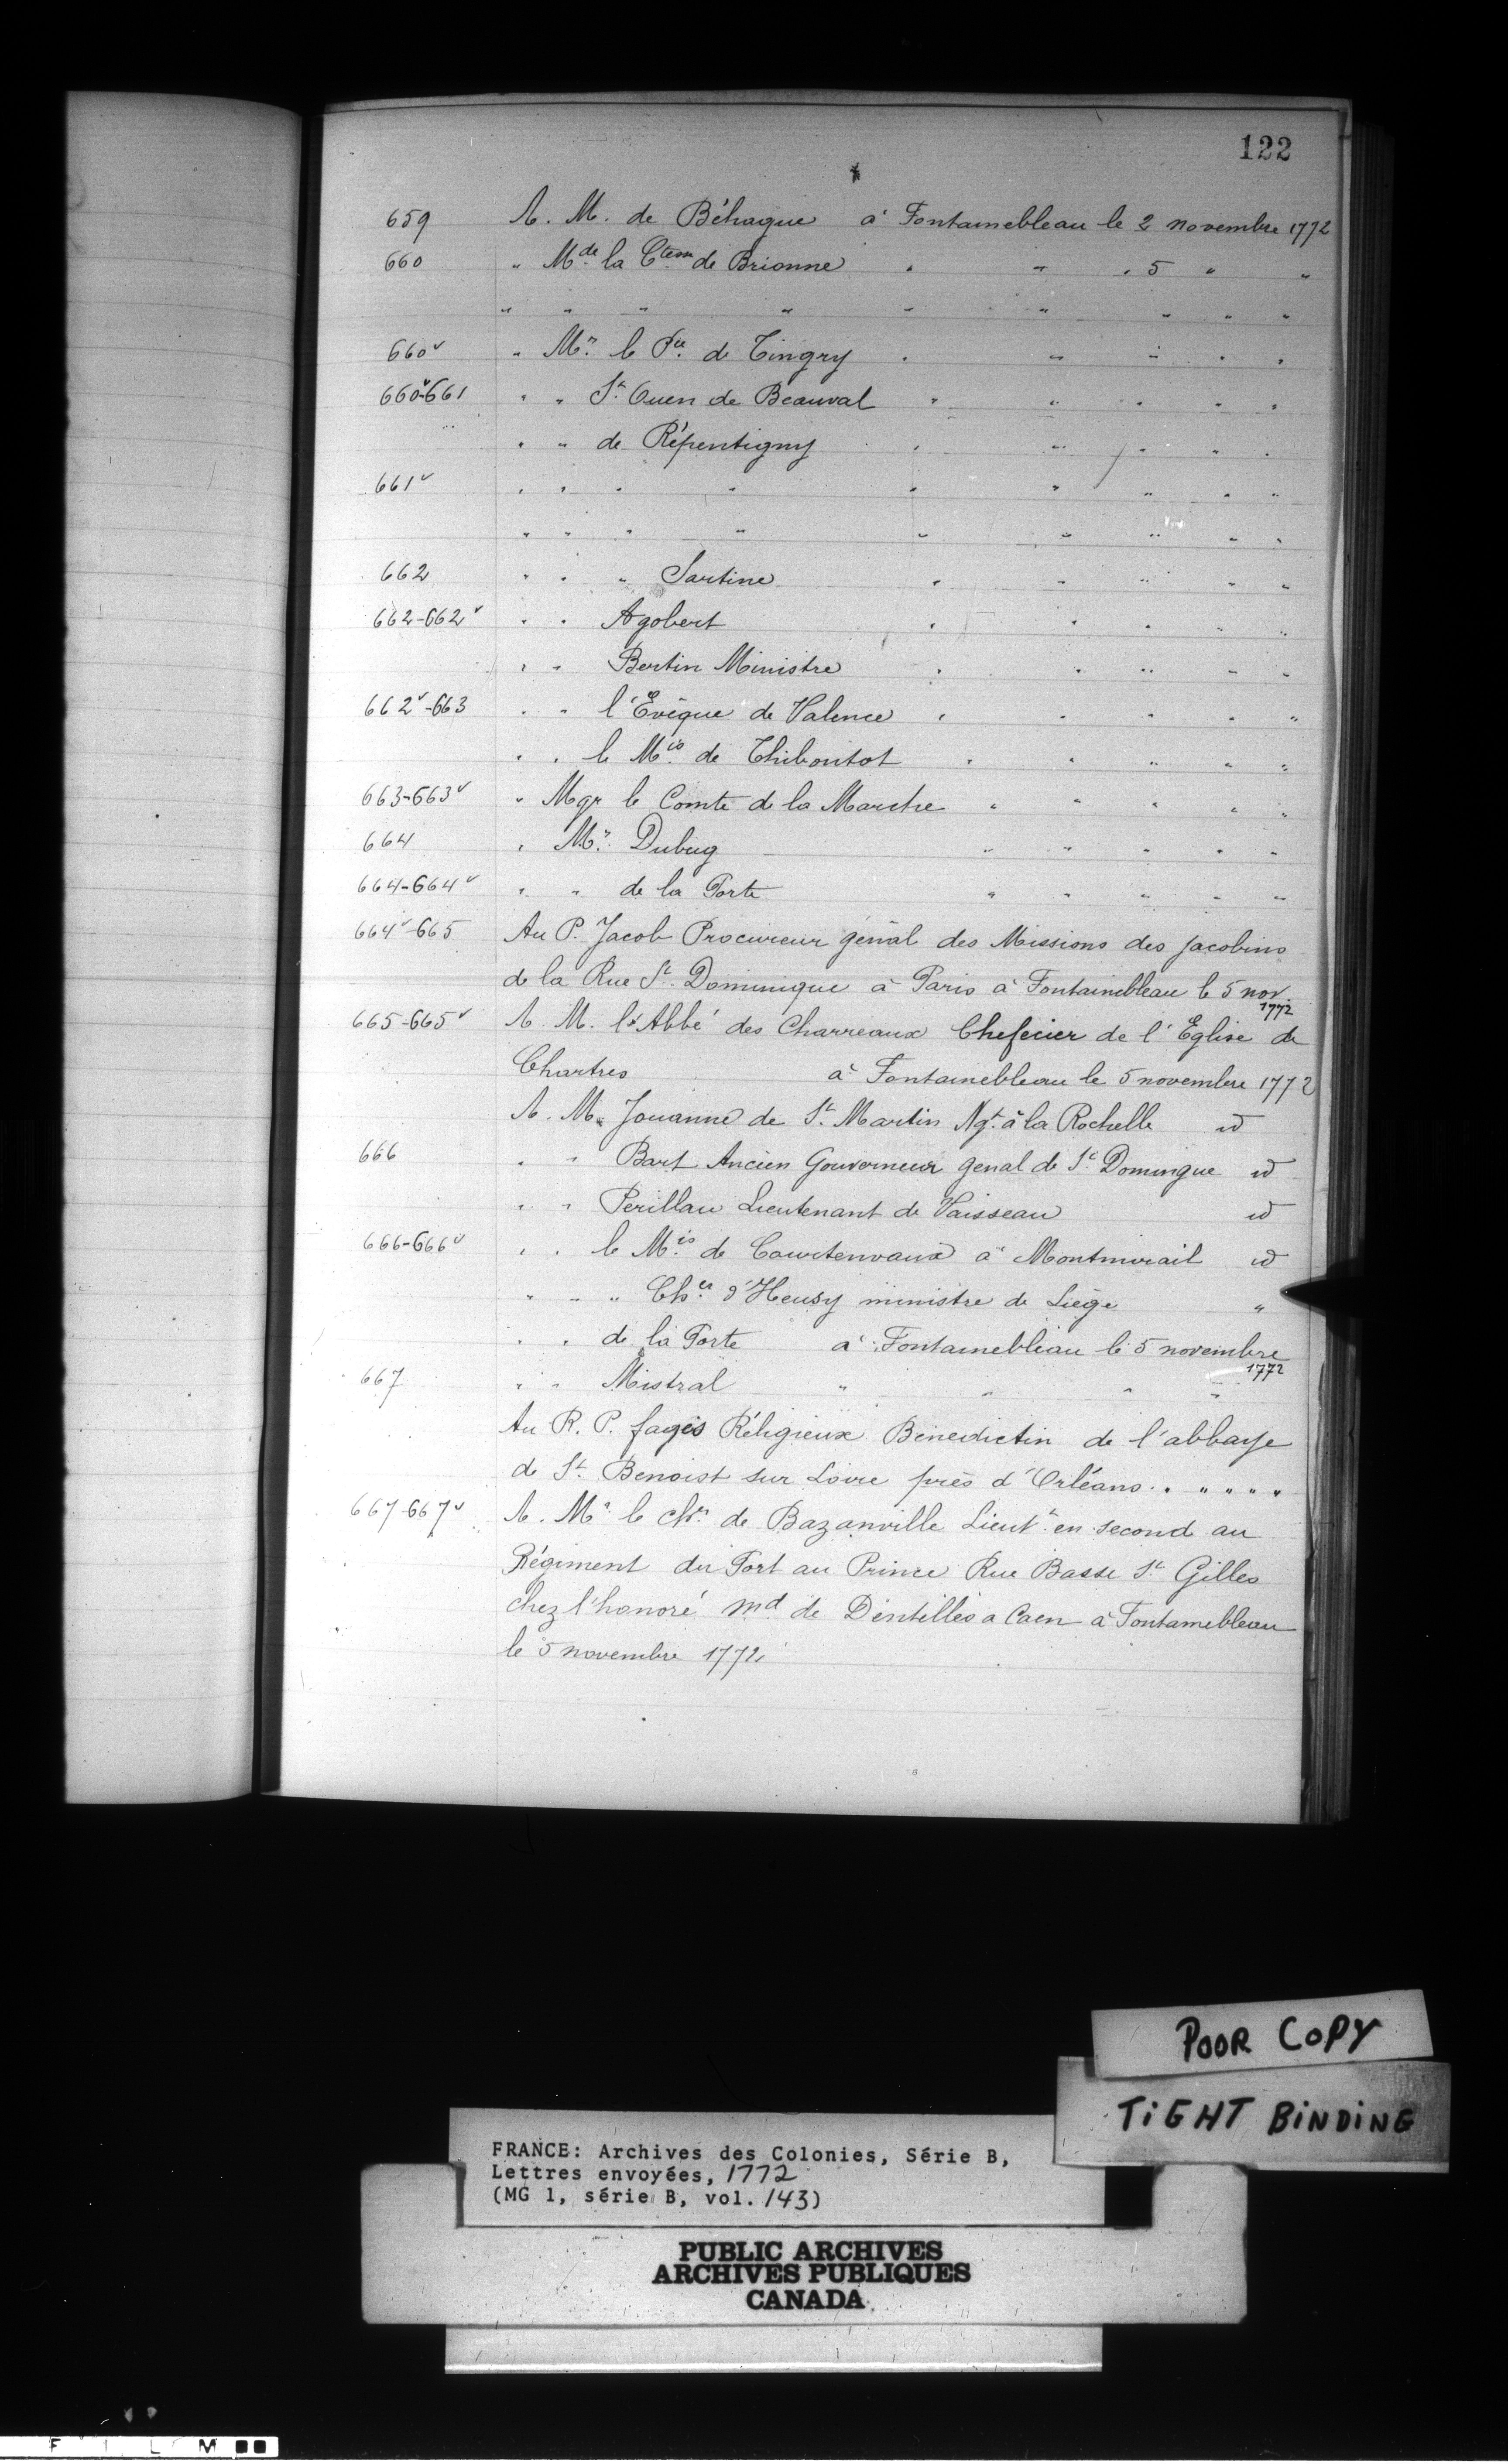 122
659 A. M. de Béhague à Fontainebleau le 2 novembre 1772
660 " Mde la Ctesse de Brionne " " " 5 " "
" " " " " " " " "
660v " Mr le Pce de Tingry " " " " "
660v-661 " " St Ouen de Beauval " " " " "
" " de Répentigny " " " " "
661v " " " " " " " " "
" " " " " " " " "
662 " " " Sartine " " " " "
662-662v " " Agobert " " " " "
" " Bertin Ministre " " " " "
662v-663 " " l'Evêque de Valence " " " " "
" " le Mis de Thiboutot " " " " "
663-663v " Mgr le Comte de la Marche " " " " "
664 " Mr Dubuq " " " " "
664-664v " " de la Porte " " " " "
664v-665 Au P. Jacob Procureur génal des Missions des Jacobins
de la Rue St Dominique à Paris à Fontainebleau le 5 nov.
1772
665-665v A. M. l'Abbé des Charreaux Chefecier de l'Eglise de
Chartres à Fontainebleau le 5 novembre 1772
A. M. Jouanne de St Martin Ngt à la Rochelle id
666 " " Bart Ancien Gouverneur genal de St Domingue id
" " Perillau Lieutenant de Vaisseau id
666-666v " " le Mis de Courtenvaux à Montmirail id
" " " Cher d'Heusy ministre de Liège "
" " de la Porte à Fontainebleau le 5 novembre
1772
667 " " Mistral " " " "
Au R. P. fages Réligieux Bénédictin de l'abbaye
de St Benoist sur Loire près d'Orléans " " " " "
667-667v A. Mr le chr de Bazanville Lieutt en second au
Régiment du Port au Prince Rue Basse St Gilles
chez l'honoré md de Dentelles a Caen à Fontainebleau
le 5 novembre 1772
POOR COPY
TiGHT BiNDiNG
FRANCE: Archives des Colonies, Série B,
Lettres envoyées, 1772
(MG 1, série B, vol. 143)
PUBLIC ARCHIVES
ARCHIVES PUBLIQUES
CANADA
F I L M